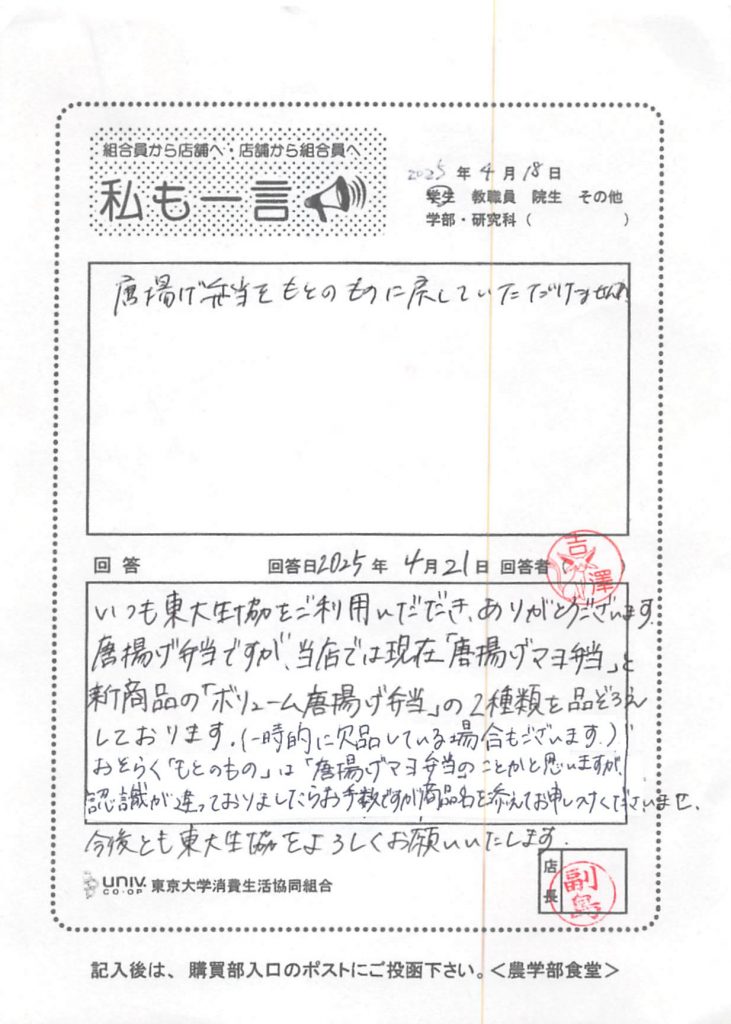 組合員から店舗へ・店舗から組合員へ
私も一言
2025年4月18日
学生 教職員 院生 その他
学部・研究科( )
唐揚げ弁当をもとのものに戻していただけませんか
回答 回答日2025年4月21日 回答者( )
吉澤
いつも東大生協をご利用いただき、ありがとうございます。
唐揚げ弁当ですが、当店では現在「唐揚げマヨ弁当」と
新商品の「ボリューム唐揚げ弁当」の2種類を品ぞろえ
しております。(一時的に欠品している場合もございます。)
おそらく「もとのもの」は「唐揚げマヨ弁当」のことかと思いますが、
認識が違っておりましたらお手数ですが商品名を添えてお申しつけくださいませ。
今後とも東大生協をよろしくお願いいたします。
UNIV. CO-OP 東京大学消費生活協同組合
店長
副島
記入後は、購買部入口のポストにご投函下さい。<農学部食堂>